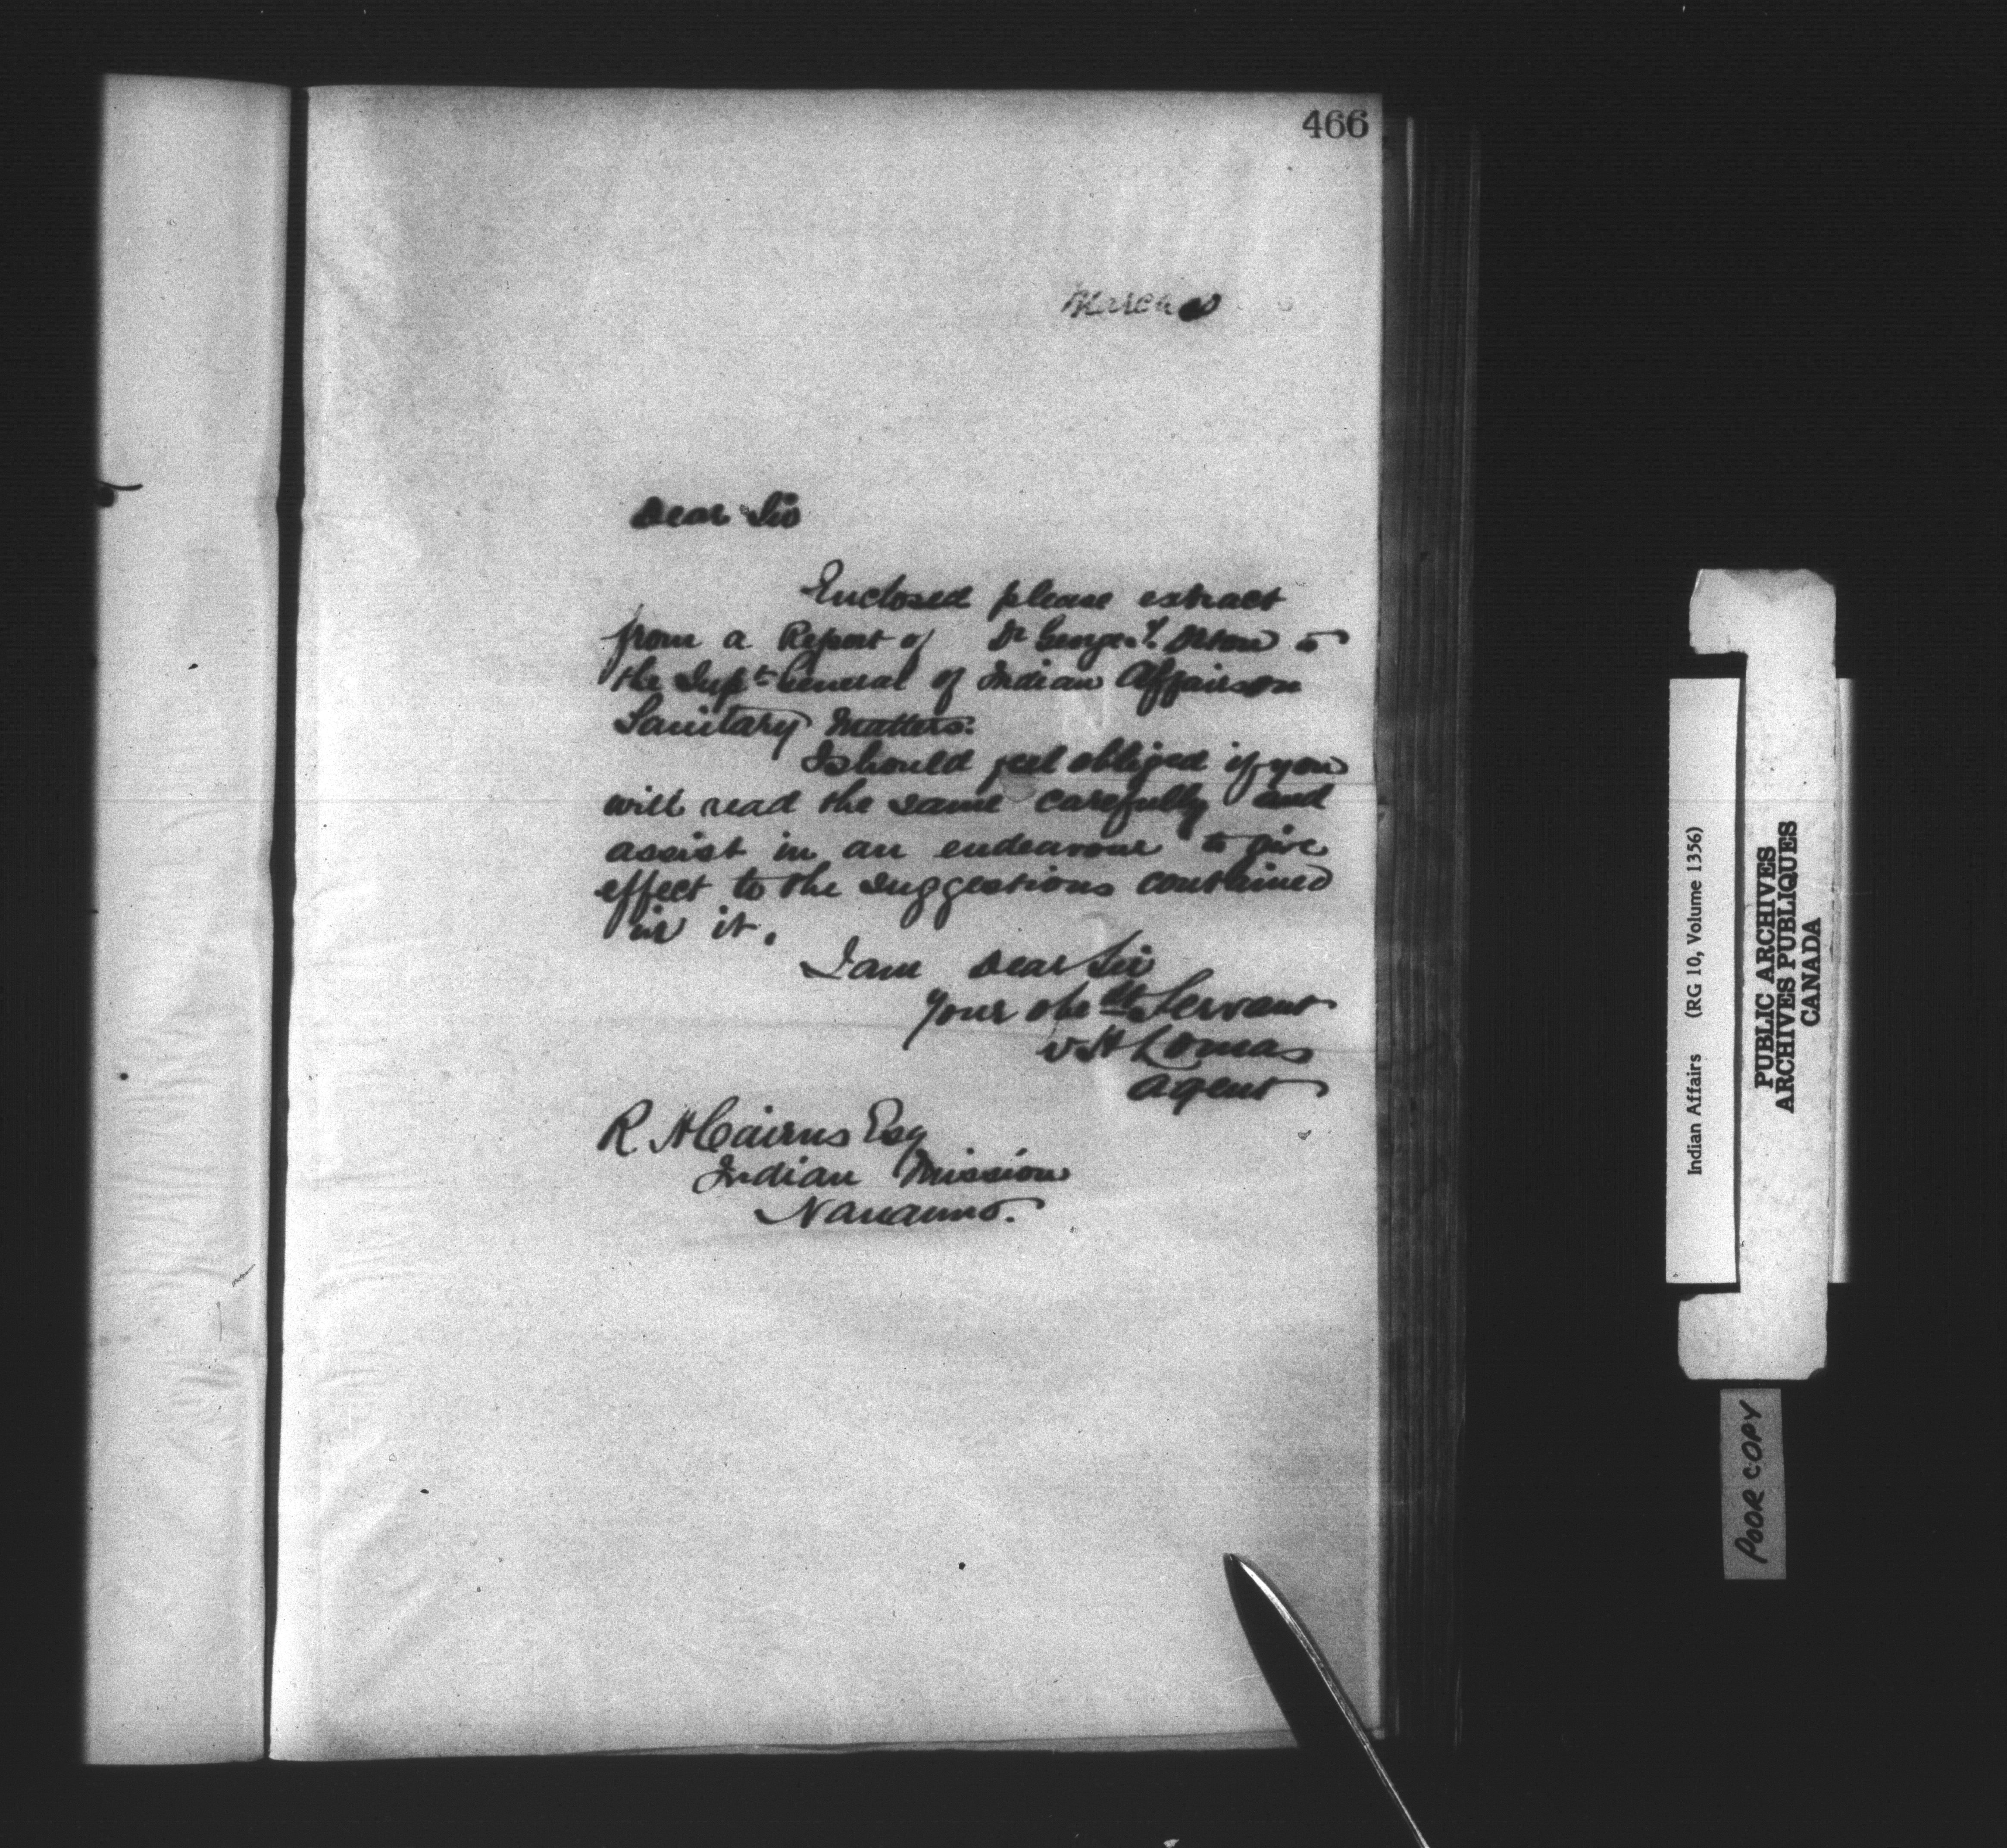 466
March
Dear Sir
Enclosed please extract
from a Report of Dr George T. Orton to
the Supt General of Indian Affairs on
Sanitary Matters.
I should feel obliged if you
will read the same carefully and
assist in an endeavour to give
effect to the suggestions contained
in it.
I am Dear Sir
Your obedt Servant
W H Lomas
Agent
R H Cairns Esq
Indian Mission
Nanaimo.
Indian Affairs (RG 10, Volume 1356)
PUBLIC ARCHIVES
ARCHIVES PUBLIQUES
CANADA
POOR COPY